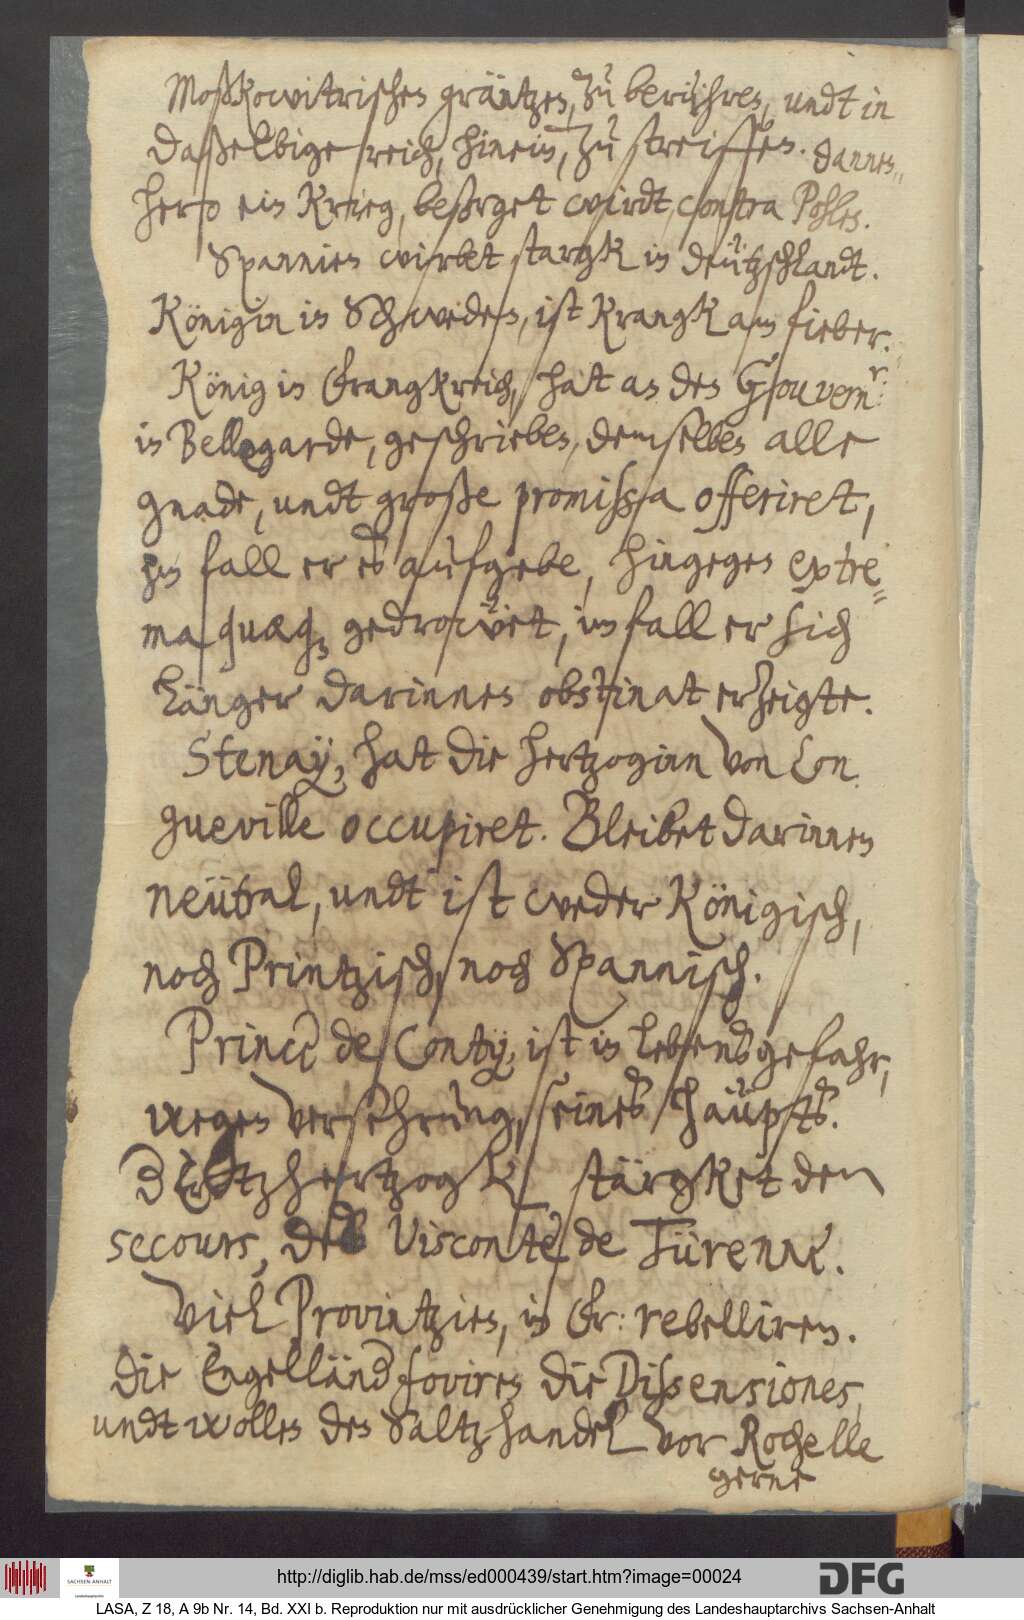 Moßkowitrischen gräntzen, zu berühren, undt in
daßelbige reich, hinein, zu streiffen. dannen¬
hero ein Krieg, besorget wirdt, contra Pohlen.
Spannien wirbet stargk in deützschlandt.
Königin in Schweden, ist krangk am fieber.
König in Frangkreich, hat an den Gouvern:r
in Bellegarde, geschrieben, demselben alle
gnade, undt große promissa offeriret,
im fall er es aufgebe, hingegen extre¬
ma quæque gedrowet, im fall er sich
länger darinnen obstinat erzeigte.
Stenay, hat die hertzoginn von Lon
gueville occupiret. Bleibet darinnen
neütral, undt ist weder Königisch,
noch Printzisch, noch Spannisch.
Prince de Conty, ist in lebensgefahr,
wegen versehrung, seines häupts.
Ertzhertzogk stärgket den
secours, des Visconte de Türenne.
Viel Provintzien, in Fr: rebelliren.
die Engelländ foviren die Dissensiones,
undt wollen den Saltzhandel vor Rochelle
gerne
http://diglib.hab.de/mss/ed000439/start.htm?image=00024
SACHSEN-ANHALT
Landeshauptarchiv
DFG
LASA, Z 18, A 9b Nr. 14, Bd. XXI b. Reproduktion nur mit ausdrücklicher Genehmigung des Landeshauptarchivs Sachsen-Anhalt